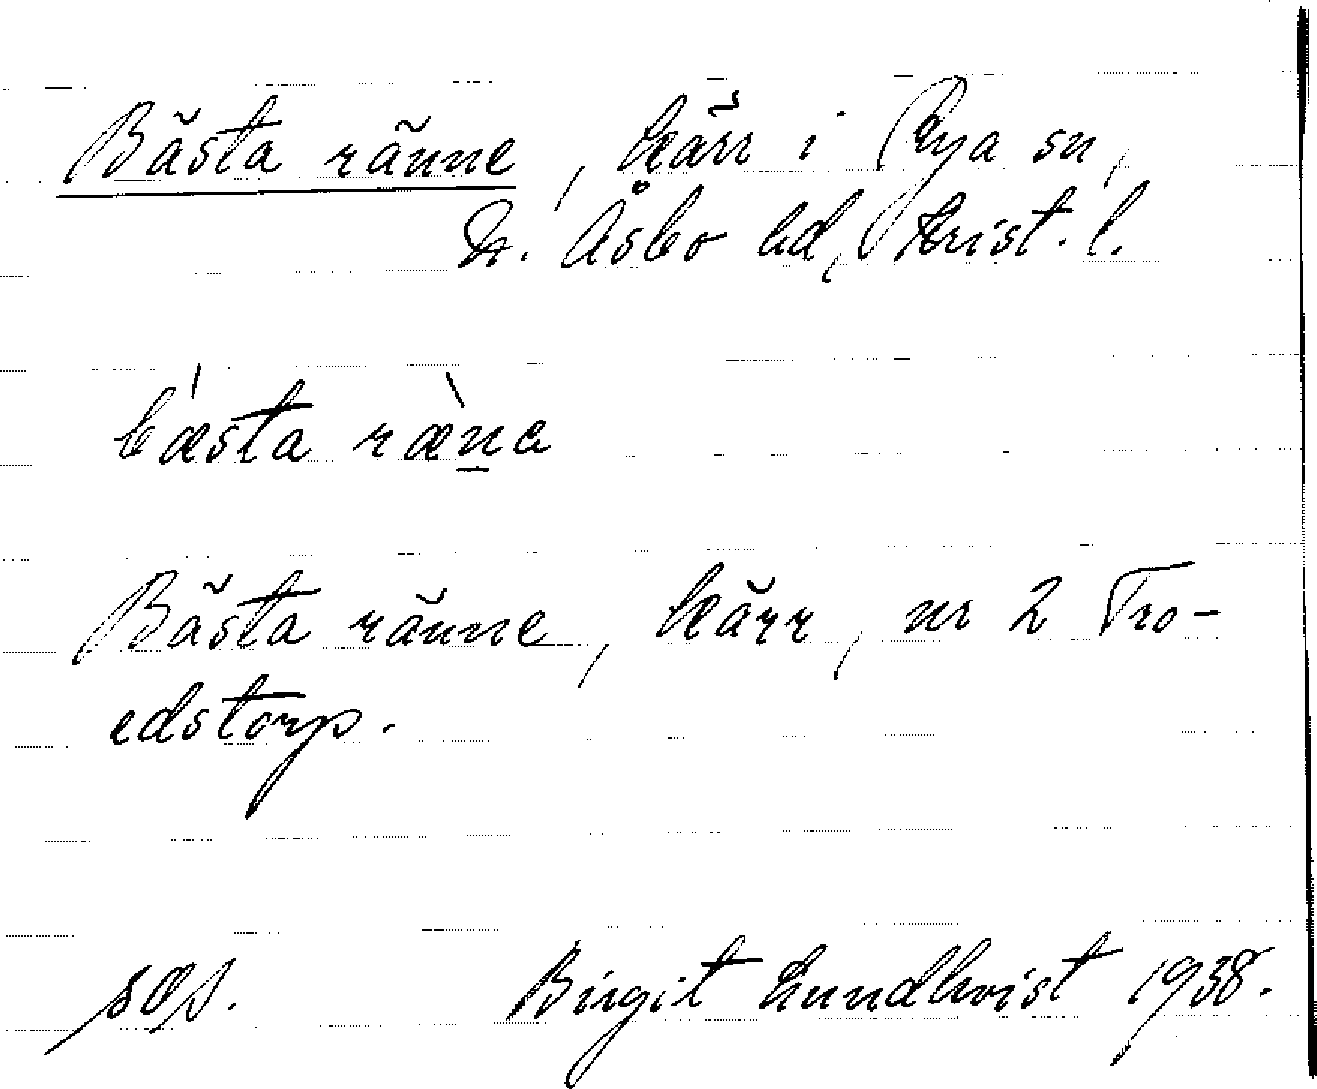 Bästa ränne, kärr i Rya sn,
N. Åsbo hd, Krist. l.
bǽsta ræ̀n̲a
Bästa ränne, kärr, nr 2 Tro-
edstorp.
Birgit Lundkvist 1938.